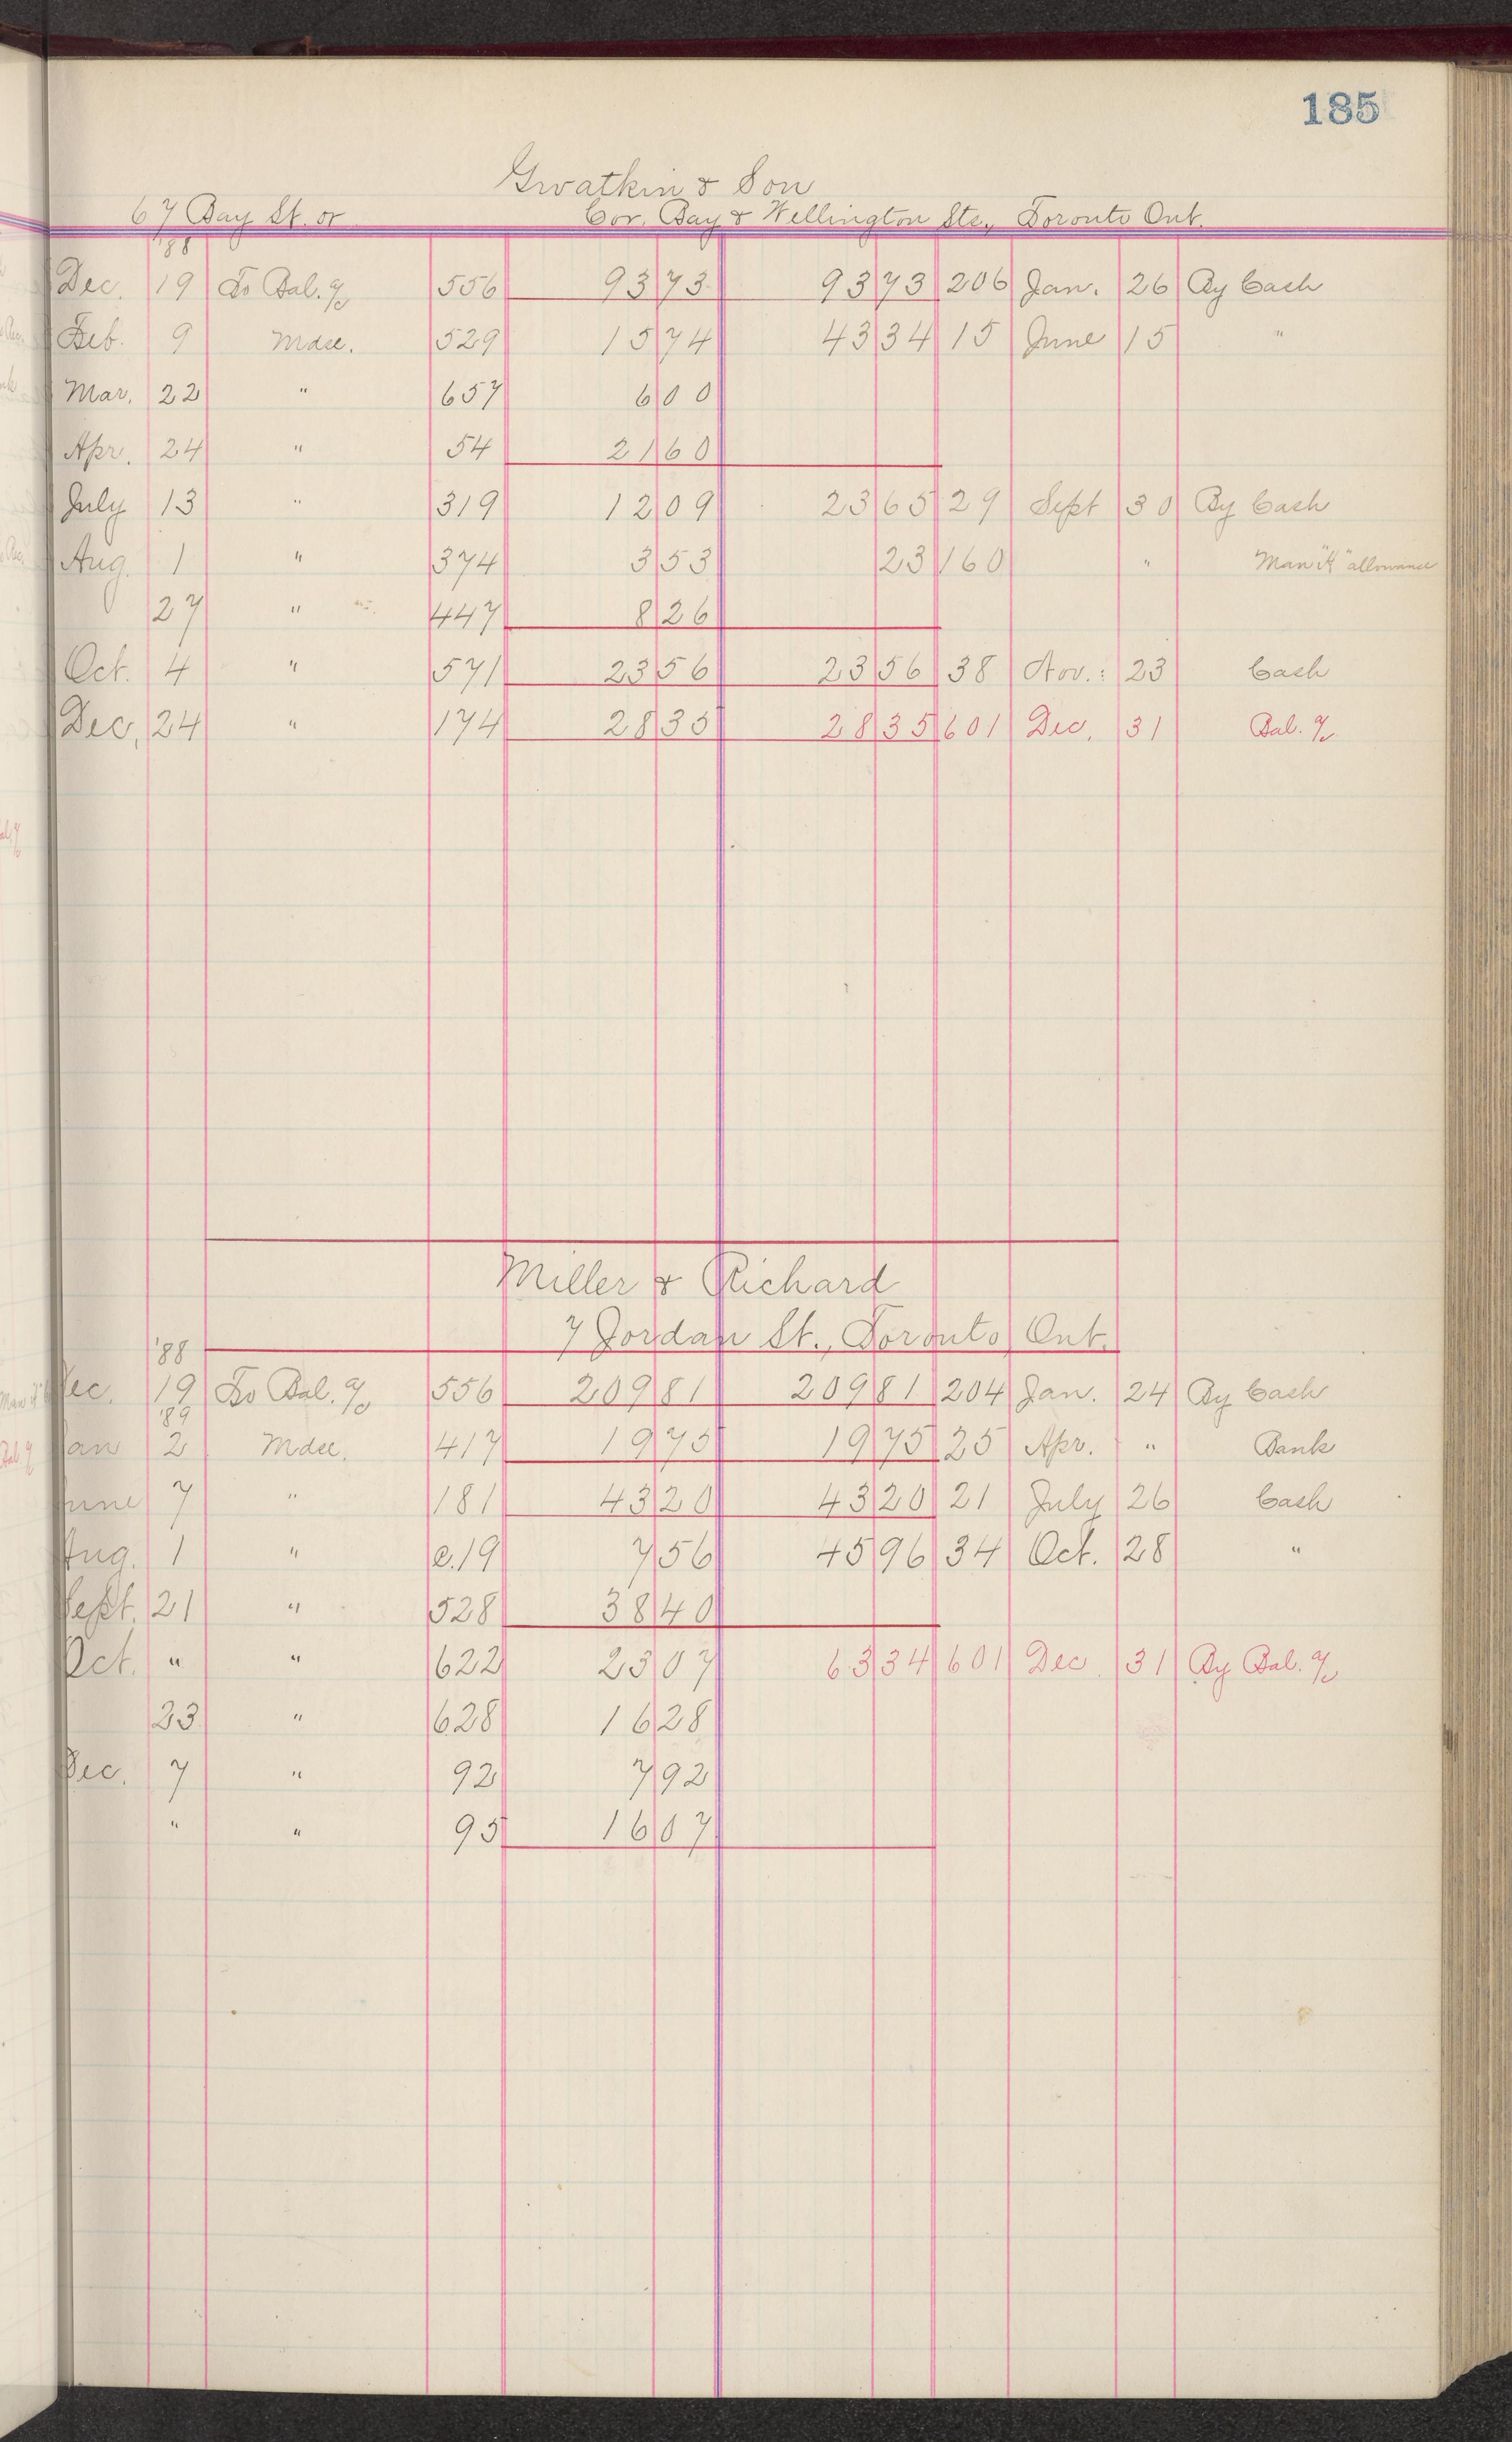 185
Gwatkin & Son
67 Bay St. or Cor. Bay & Wellington Sts., Toronto Ont.
'88
Dec. 19 To Bal. % 556 93 73 93 73 206 Jan. 26 By Cash
Feb. 9 Mdse. 529 15 74 43 34 15 June 15 "
Mar. 22 " 657 6 00
Apr. 24 " 54 21 60
July 13 " 319 12 09 23 65 29 Sept 30 By Cash
Aug. 1 " 374 3 53 23 160 " Man "K" allowance
27 " 447 8 26
Oct. 4 " 571 23 56 23 56 38 Nov. 23 Cash
Dec. 24 " 174 28 35 28 35 601 Dec. 31 Bal. %
Miller & Richard
7 Jordan St., Toronto, Ont.
'88
Dec. 19 To Bal. % 556 209 81 209 81 204 Jan. 24 By Cash
'89
Jan 2 Mdse. 417 19 75 19 75 25 Apr. " Bank
June 7 " 181 43 20 43 20 21 July 26 Cash
Aug. 1 " C.19 7 56 45 96 34 Oct. 28 "
Sept. 21 " 528 38 40
Oct. " " 622 23 07 63 34 601 Dec. 31 By Bal. %
23 " 628 16 28
Dec. 7 " 92 7 92
" " 95 16 07